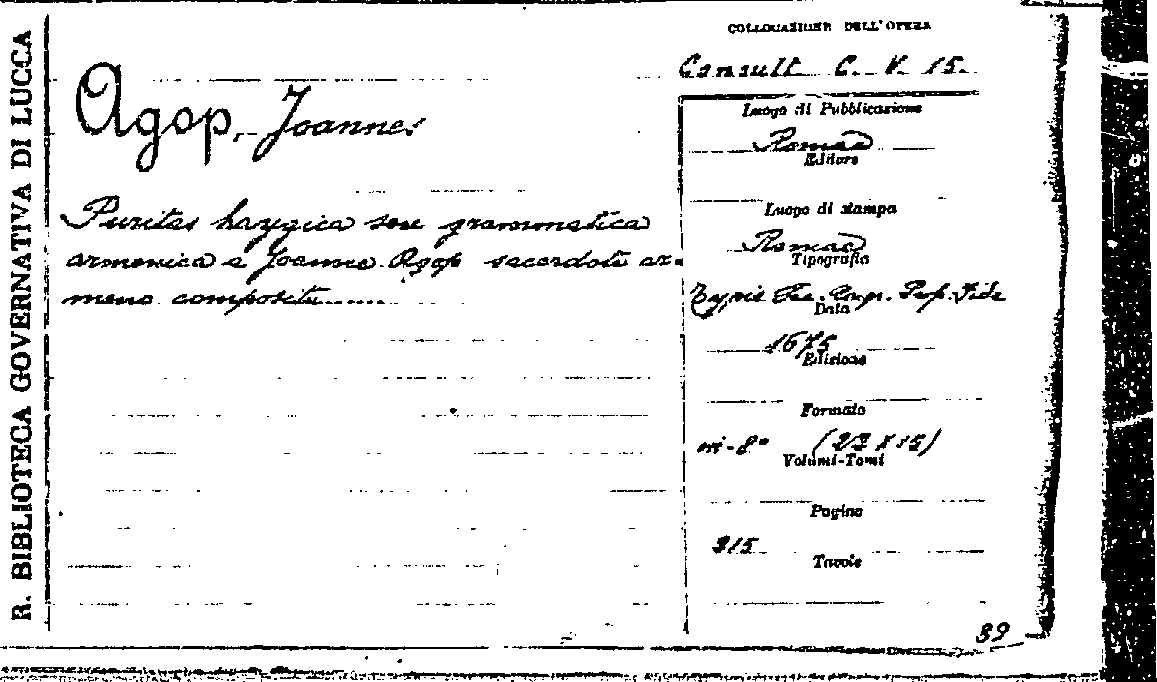 R. BIBLIOTECA GOVERNATIVA DI LUCCA
COLLOCAZIONE DELL'OPERA
Consult C. V. 15.
Agop, Joannes
Luogo di Pubblicazione
Romae
Editore
Puritas haygica seu grammatica
armenica a Joanne Agop sacerdote ar-
meno composita......
Luogo di stampa
Romae
Tipografia
Typis Sac. Congr. Prop. Fide
Data
1675
Edizione
Formato
in-8° (23 X 15)
Volumi-Tomi
Pagine
215
Tavole
39